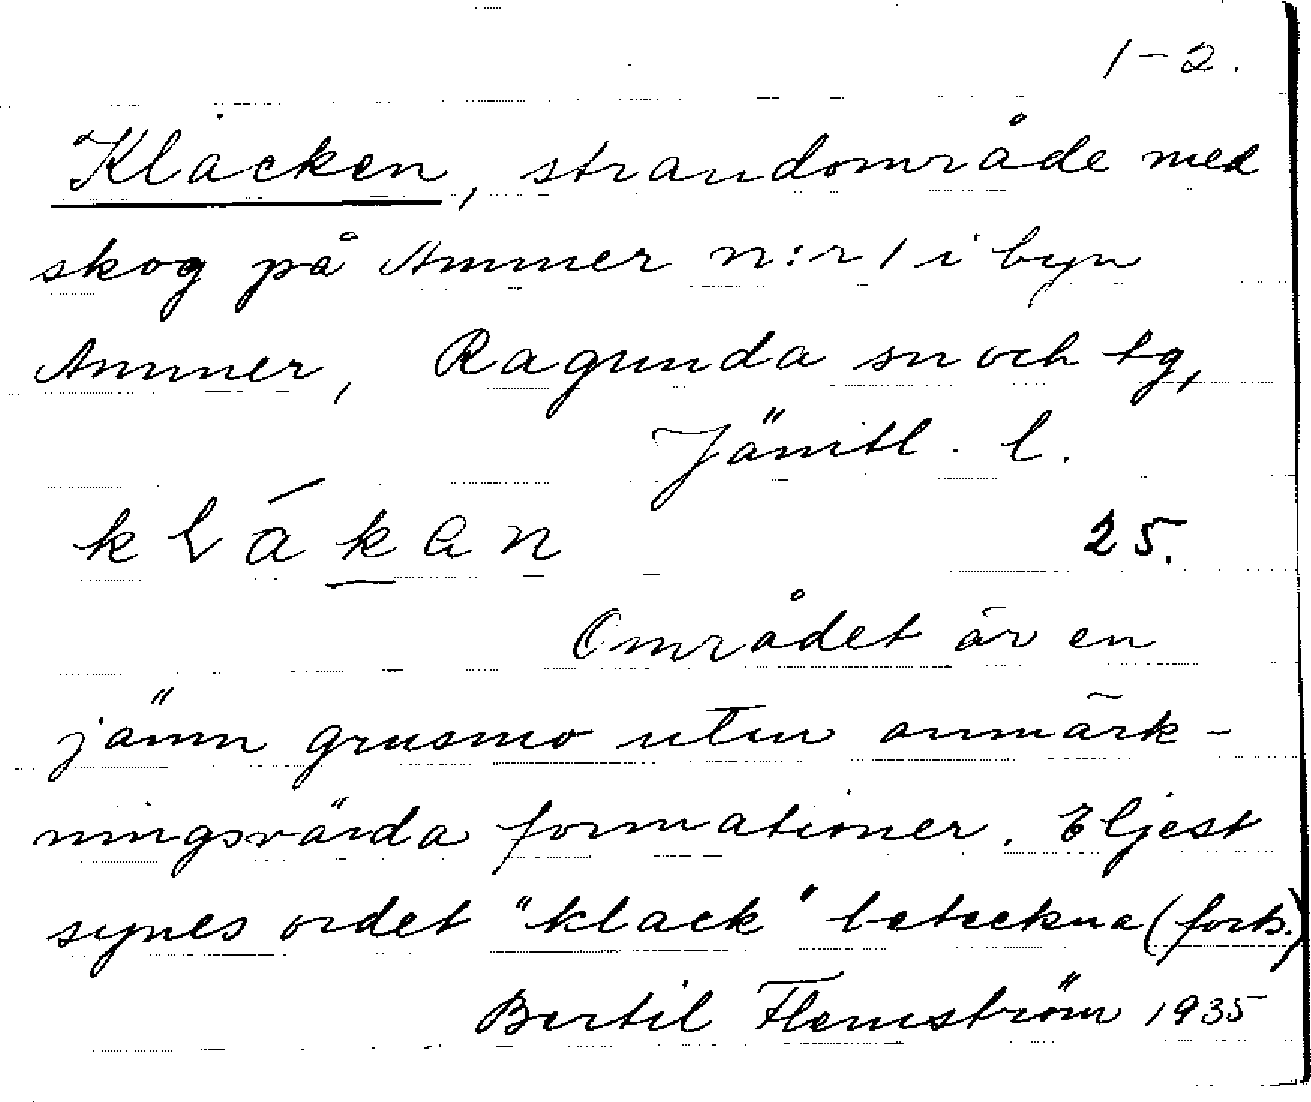 1-2.
Klacken, strandområde med
skog på Ammer n:r 1 i byn
Ammer, Ragunda sn och tg,
Jämtl. l.
klákan 25.
Området är en
jämn grusmo utan anmärk-
ningsvärda formationer. Eljest
synes ordet "klack" beteckna (forts.)
Bertil Flemström 1935